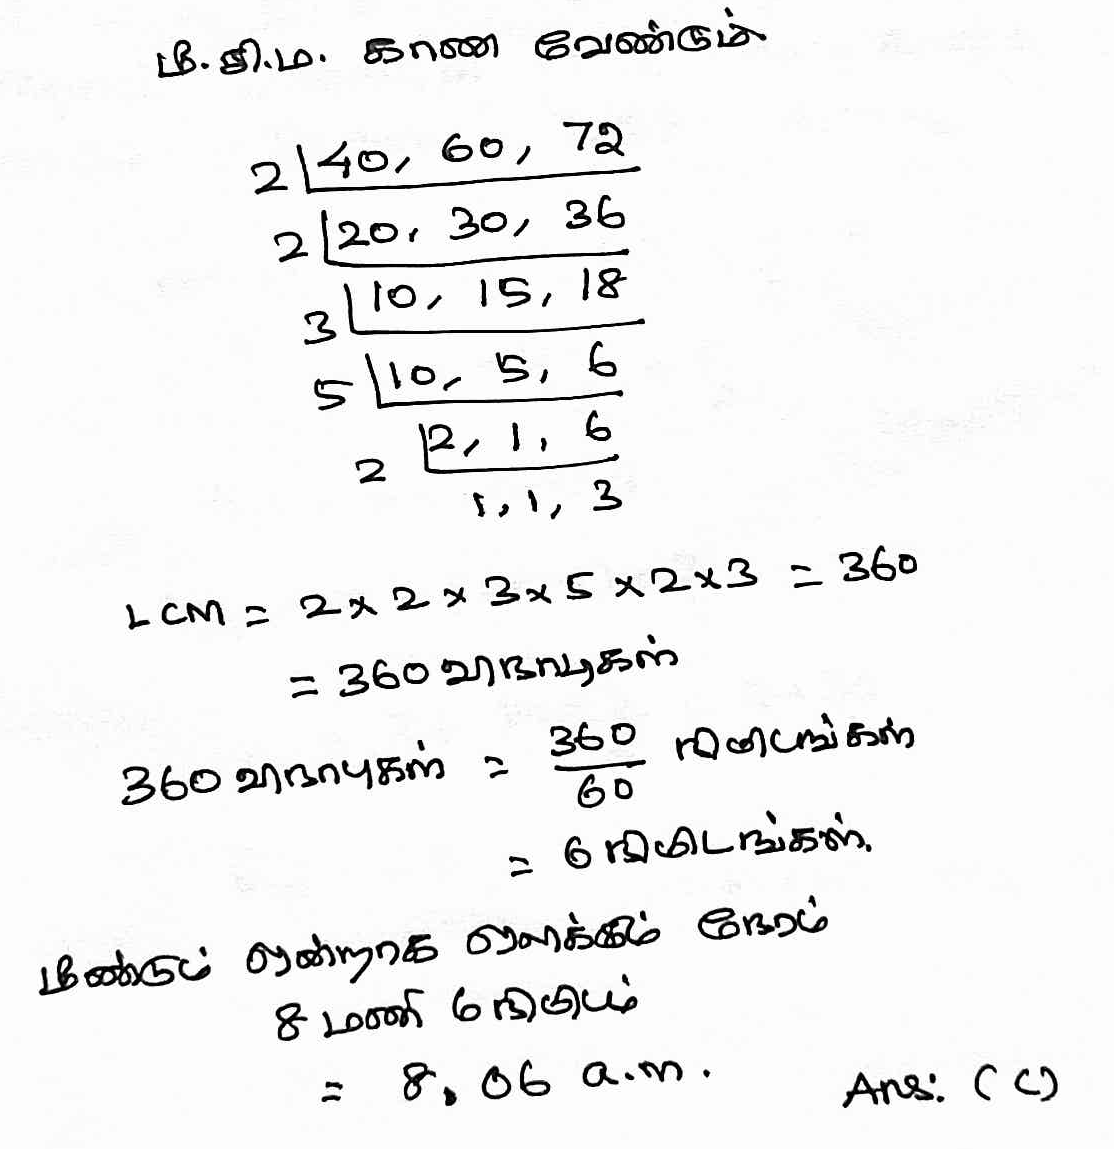 மீ.சி.ம. காண வேண்டும்
2 | 40, 60, 72
2 | 20, 30, 36
3 | 10, 15, 18
5 | 10, 5, 6
2 | 2, 1, 6
1, 1, 3
LCM = 2 x 2 x 3 x 5 x 2 x 3 = 360
= 360 விநாடிகள்
360 விநாடிகள் = 360/60 நிமிடங்கள்
= 6 நிமிடங்கள்.
மீண்டும் ஒன்றாக ஒலிக்கும் நேரம்
8 மணி 6 நிமிடம்
= 8.06 a.m. Ans: (C)